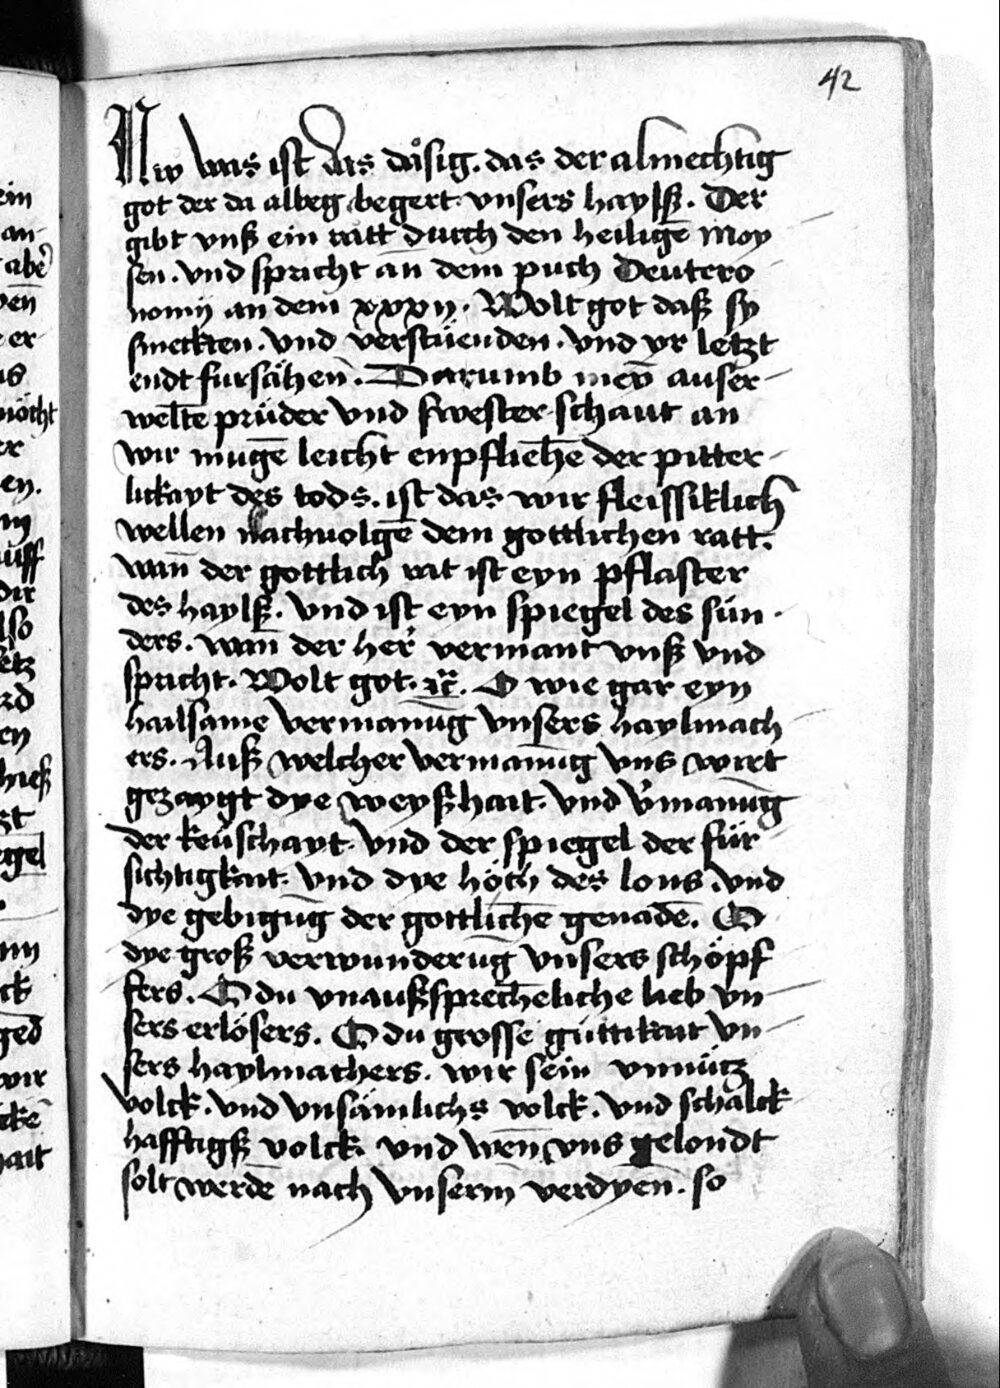 42
Nw was ist das däsig. das der almechtig
got der da albeg begert vnsers haylß. Der
gibt vnß ein ratt durch den heiligē moy
sen. vnd spricht an dem puch Deutero
nomij an dem xxxij. Wolt got daß sy
smeckten. vnd verstüenden. vnd yr letzt
endt fursähen. Darumb meȳ auser
welte prüder vnd swester schaut an
wir mugē leicht enpfliehē der pitter
lickayt des tods. ist das wir fleissiklich
wellen nachuolgē dem gottlichen ratt.
wan̄ der gottlich rat ist eyn pflaster
des haylß. vnd ist eyn spiegel des sün
ders. wan̄ der her̄ vermant vnß vnd
spricht. Wolt got. ꝛc̄. O wie gar eyn
hailsame vermanūg vnsers haylmach
ers. Auß welcher vermanūg vns wirt
gezaygt dye weyßhait. vnd v̓manūg
der keüschayt. vnd der spiegel der für
sichtigkait. vnd dye höch des lons. vnd
dye gebigūg der gottlichē genadē. O
dye groß verwunderūg vnsers schöpf
fers. O du vnaußsprechēliche lieb vn
sers erlösers. O du grosse güttikait vn
sers haylmachers. wir sein vnnütz
volck. vnd vnsämlichs volck. vnd schalck
hafftigß volck. vnd wen̄ vns gelondt
solt werdē nach vnserm̄ verdyen̄. so